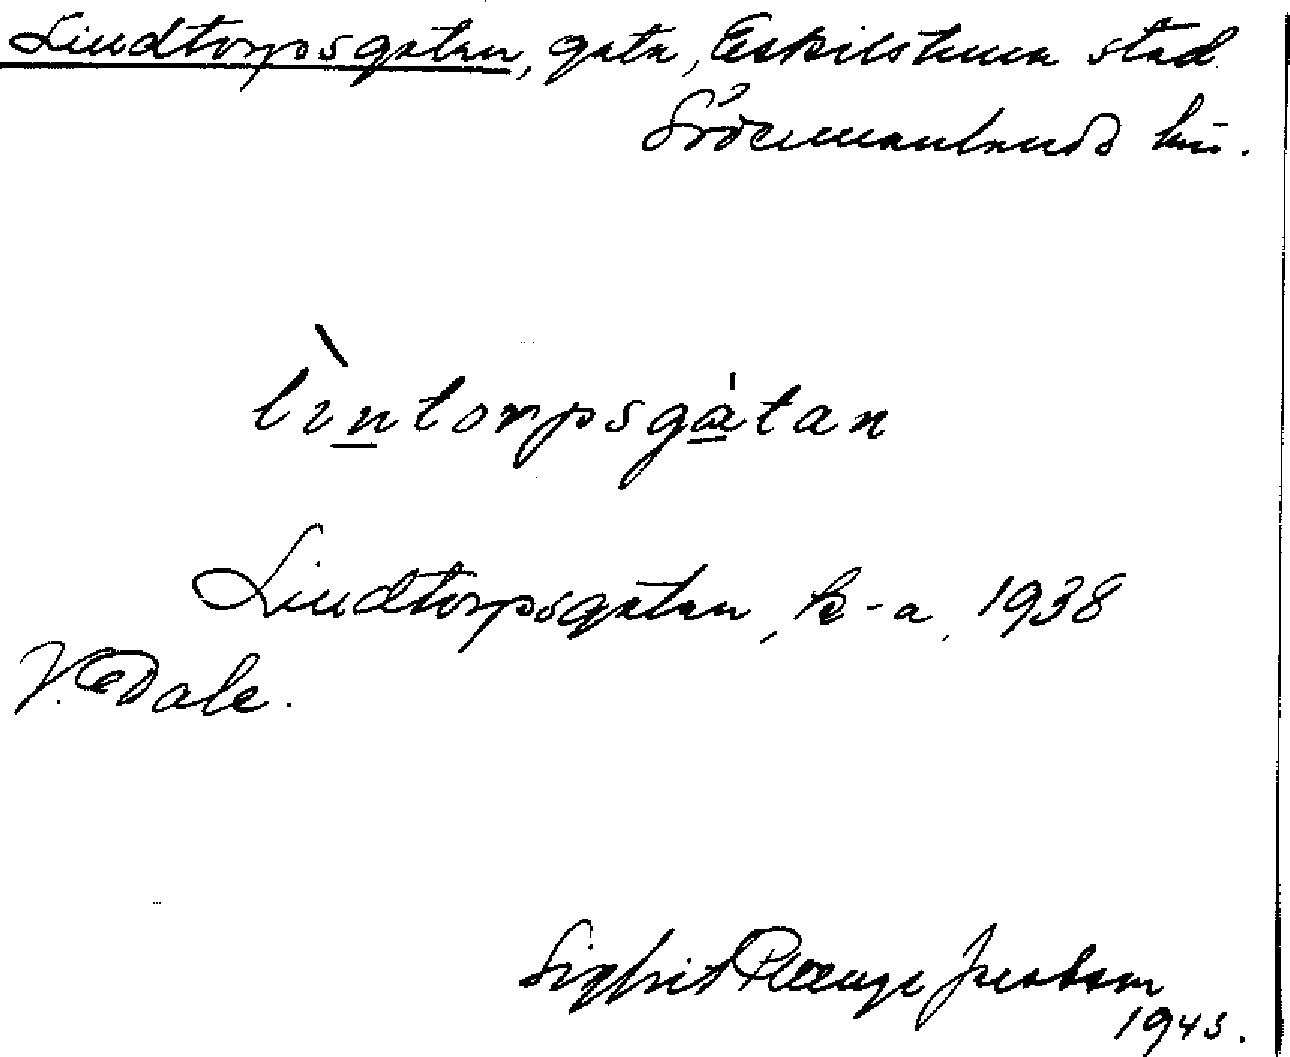 Lindtorpsgatan, gata, Eskilstuna stad
Södermanlands län.
lìntorpsgatan
Lindtorpsgatan, k-a, 1938
V. Dale.
Sigfrid Plænge Jacobson
1943.